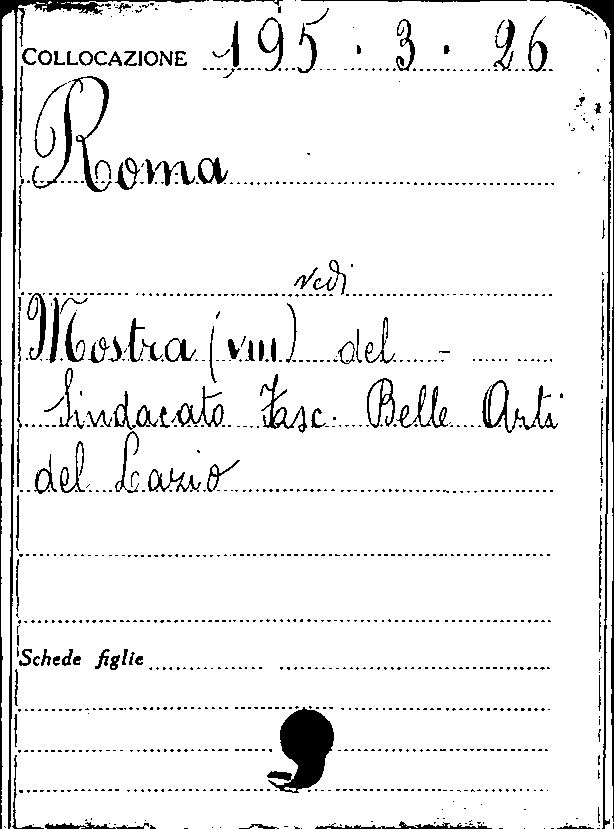 COLLOCAZIONE 195 · 3 · 26
Roma
vedi
Mostra (VIII) del -
Sindacato Fasc. Belle Arti
del Lazio
Schede figlie